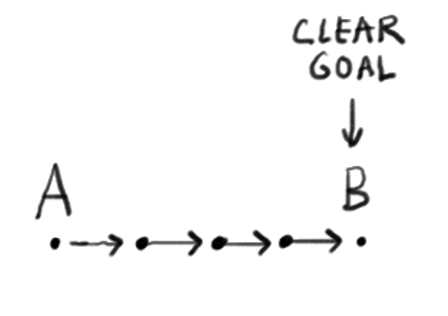 CLEAR
GOAL
A
B